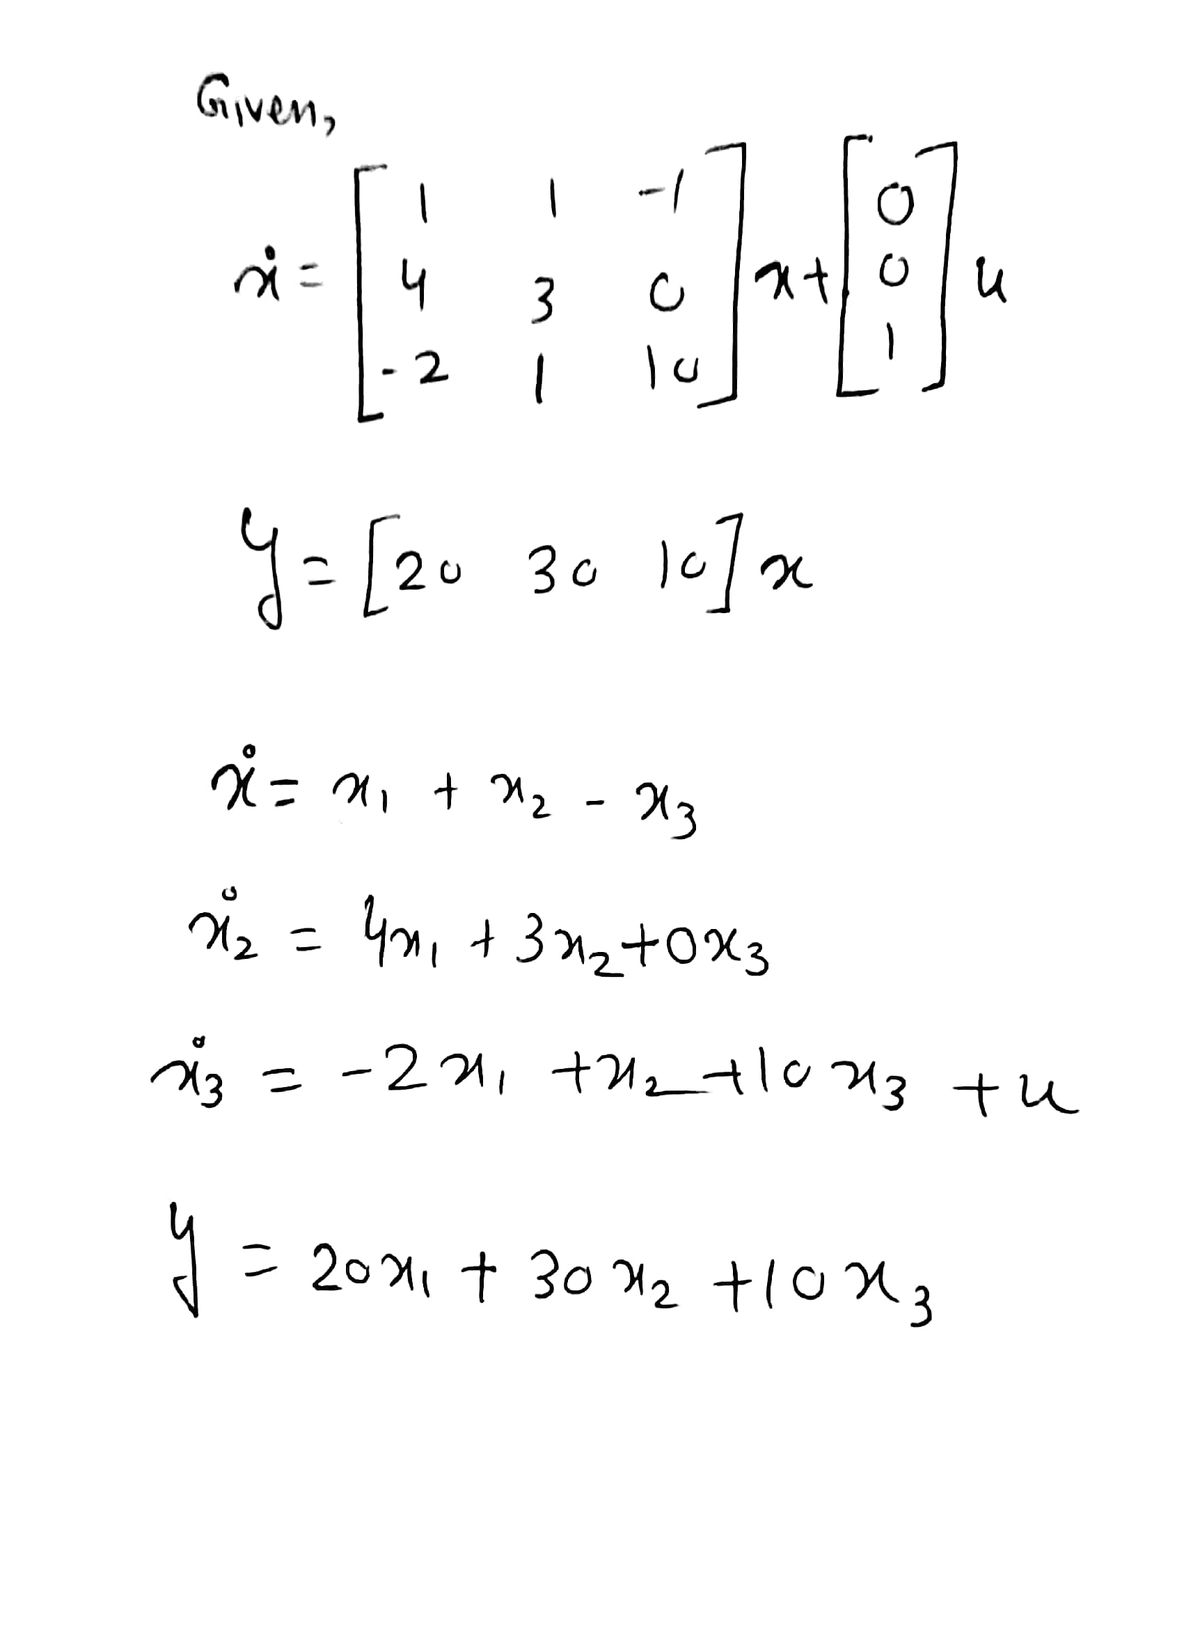 Given,
ẋ = [1 1 -1; 4 3 0; -2 1 10] x + [0; 0; 1] u
y = [20 30 10] x
ẋ = x₁ + x₂ - x₃
ẋ₂ = 4x₁ + 3x₂ + 0x₃
ẋ₃ = -2x₁ + x₂ + 10x₃ + u
y = 20x₁ + 30x₂ + 10x₃